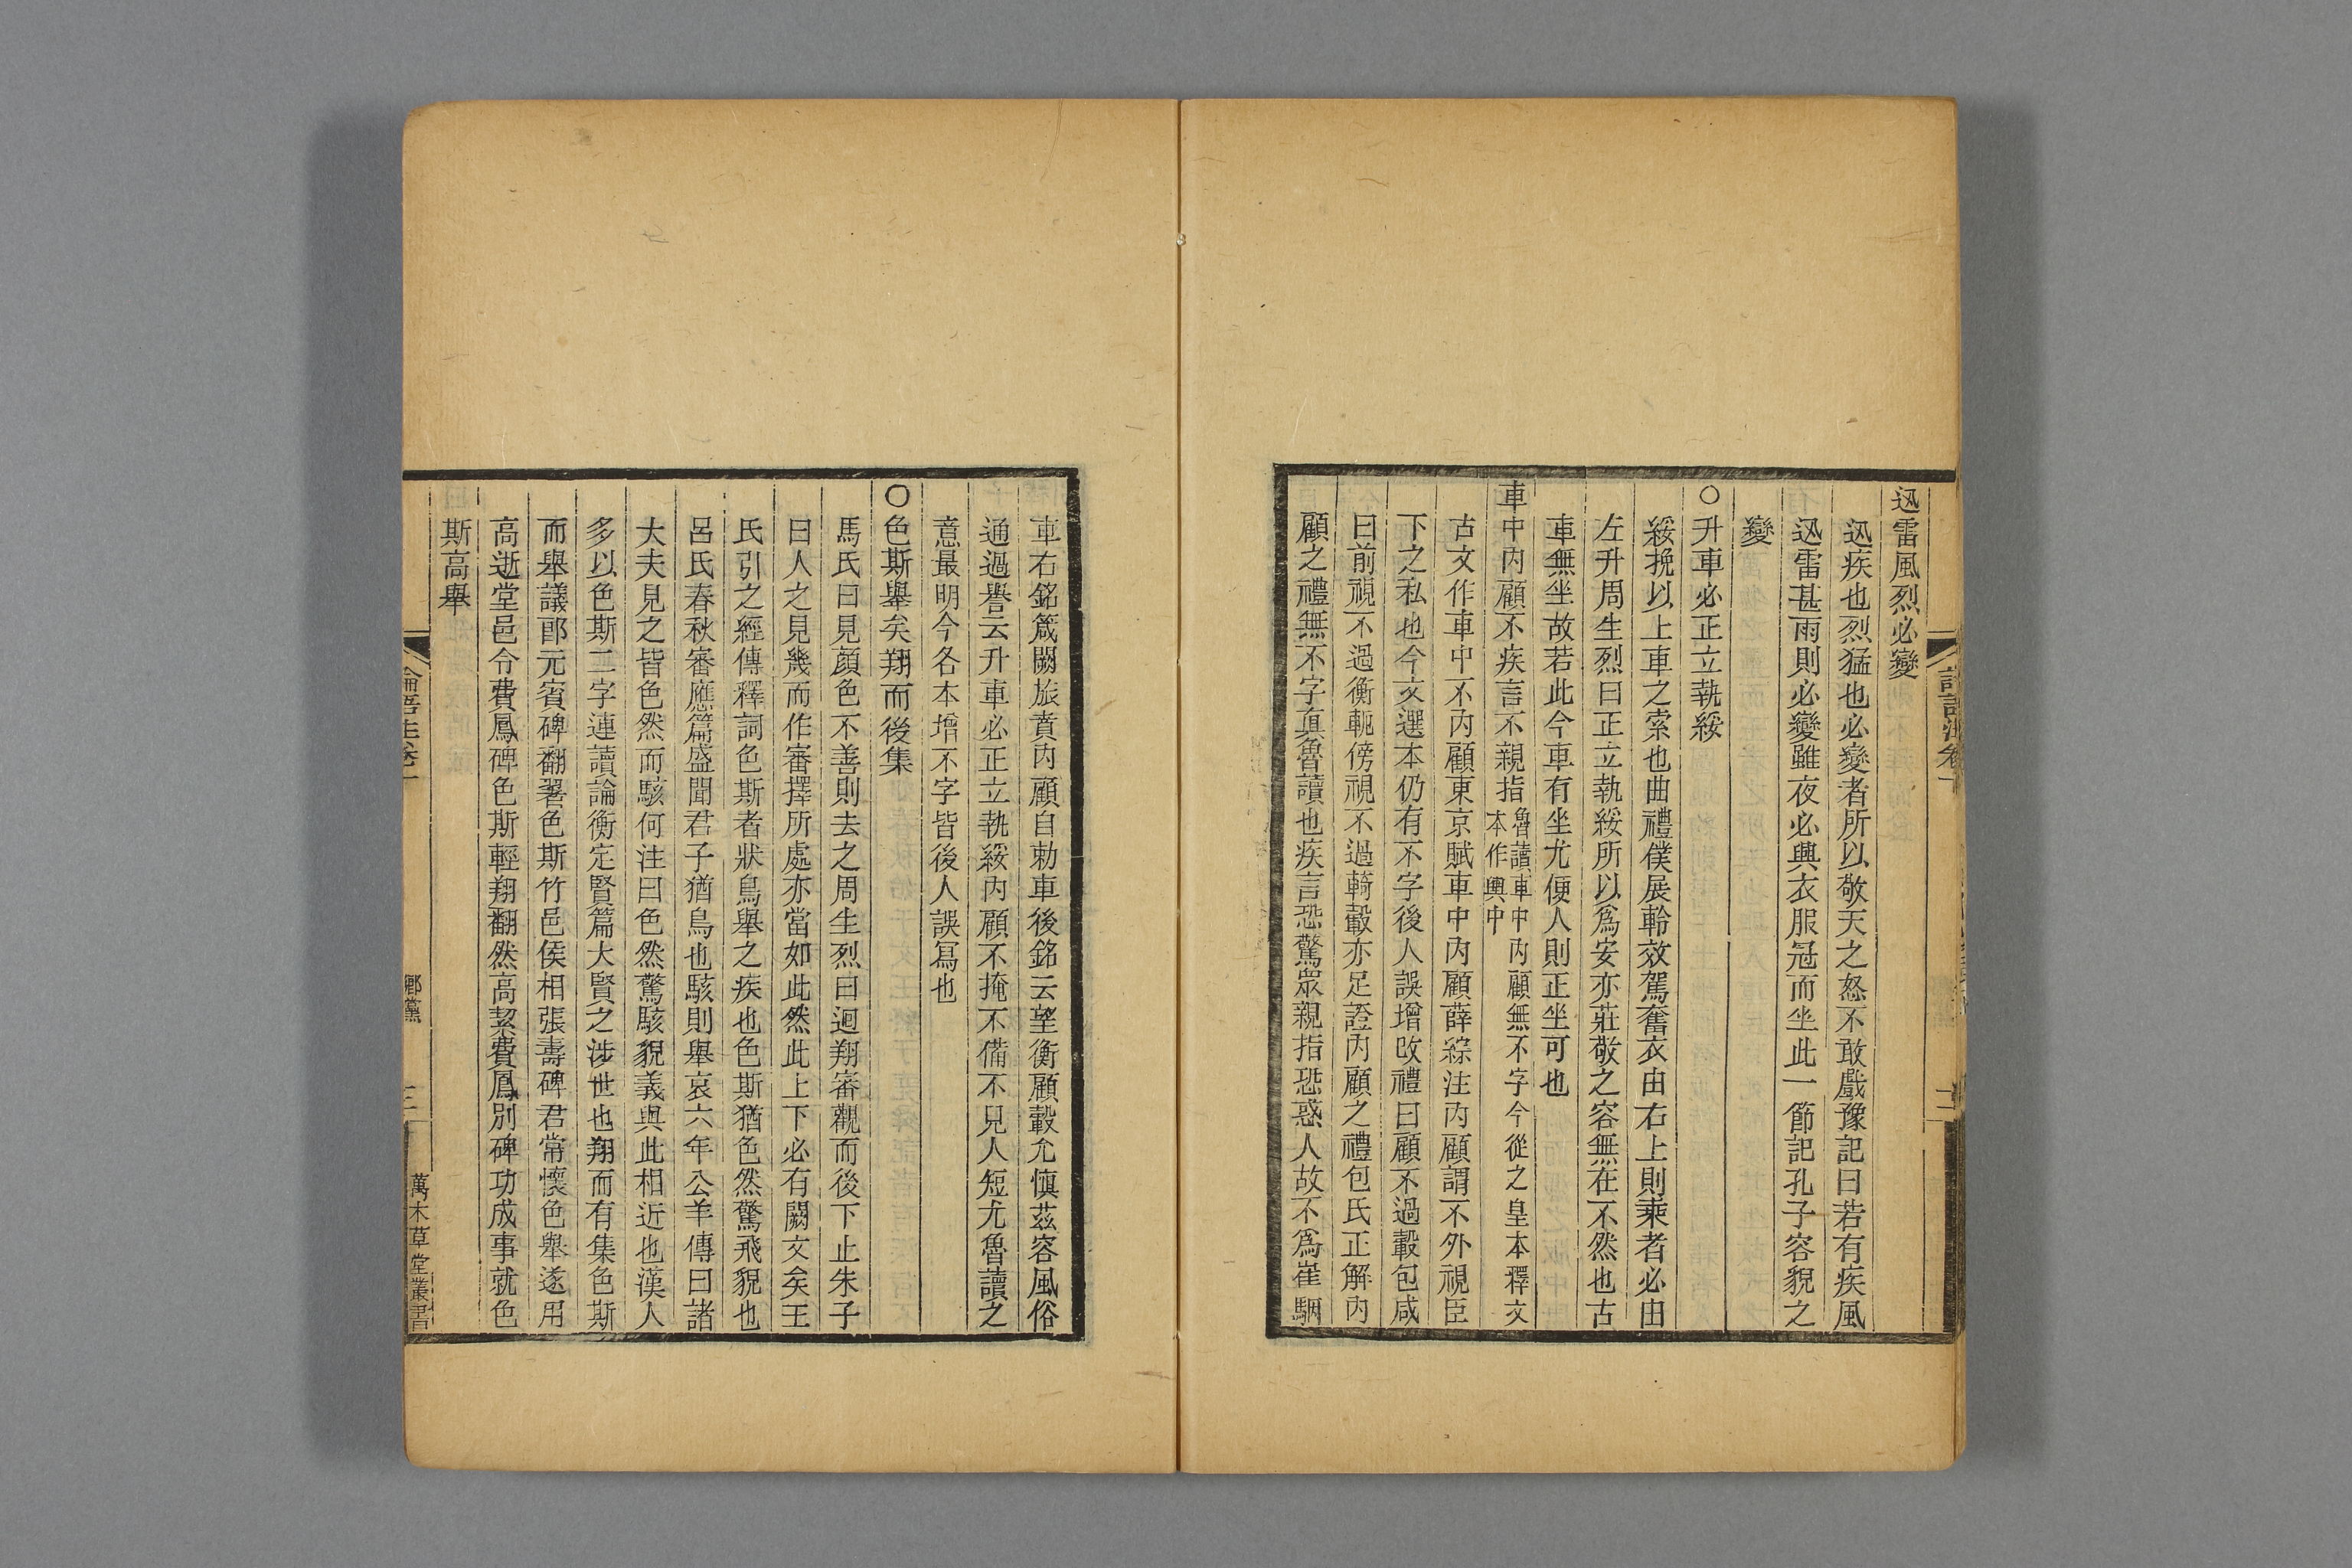 迅雷風烈必變
迅疾也烈猛也必變者所以敬天之怒不敢戲豫記曰若有疾風
迅雷甚雨則必變雖夜必興衣服冠而坐此一節記孔子容貌之
變
○升車必正立執綏
綏挽以上車之索也曲禮僕展軨效駕奮衣由右上則乘者必由
左升周生烈曰正立執綏所以爲安亦莊敬之容無在不然也古
車無坐故若此今車有坐尤便人則正坐可也
車中內顧不疾言不親指魯讀車中內顧無不字今從之皇本釋文
本作輿中
古文作車中不內顧東京賦車中內顧薛綜注內顧謂不外視臣
下之私也今文選本仍有不字後人誤增改禮曰顧不過轂包咸
曰前視不過衡軛傍視不過輢轂亦足證內顧之禮包氏正解內
顧之禮無不字眞魯讀也疾言恐驚眾親指恐惑人故不爲崔駰
車右銘箴闕旅賁內顧自勅車後銘云望衡顧轂允愼茲容風俗
通過譽云升車必正立執綏內顧不掩不備不見人短尤魯讀之
意最明今各本增不字皆後人誤寫也
○色斯舉矣翔而後集
馬氏曰見顏色不善則去之周生烈曰迴翔審觀而後下止朱子
曰人之見幾而作審擇所處亦當如此然此上下必有闕文矣王
氏引之經傳釋詞色斯者狀鳥舉之疾也色斯猶色然驚飛貌也
呂氏春秋審應篇盛聞君子猶鳥也駭則舉哀六年公羊傳曰諸
大夫見之皆色然而駭何注曰色然驚駭貌義與此相近也漢人
多以色斯二字連讀論衡定賢篇大賢之涉世也翔而有集色斯
而舉議郎元賓碑翻翥色斯竹邑侯相張壽碑君常懷色舉遂用
高逝堂邑令費鳳碑色斯輕翔翻然高絜費鳳別碑功成事就色
斯高舉
論語注卷十
鄉黨
三
萬木草堂叢書